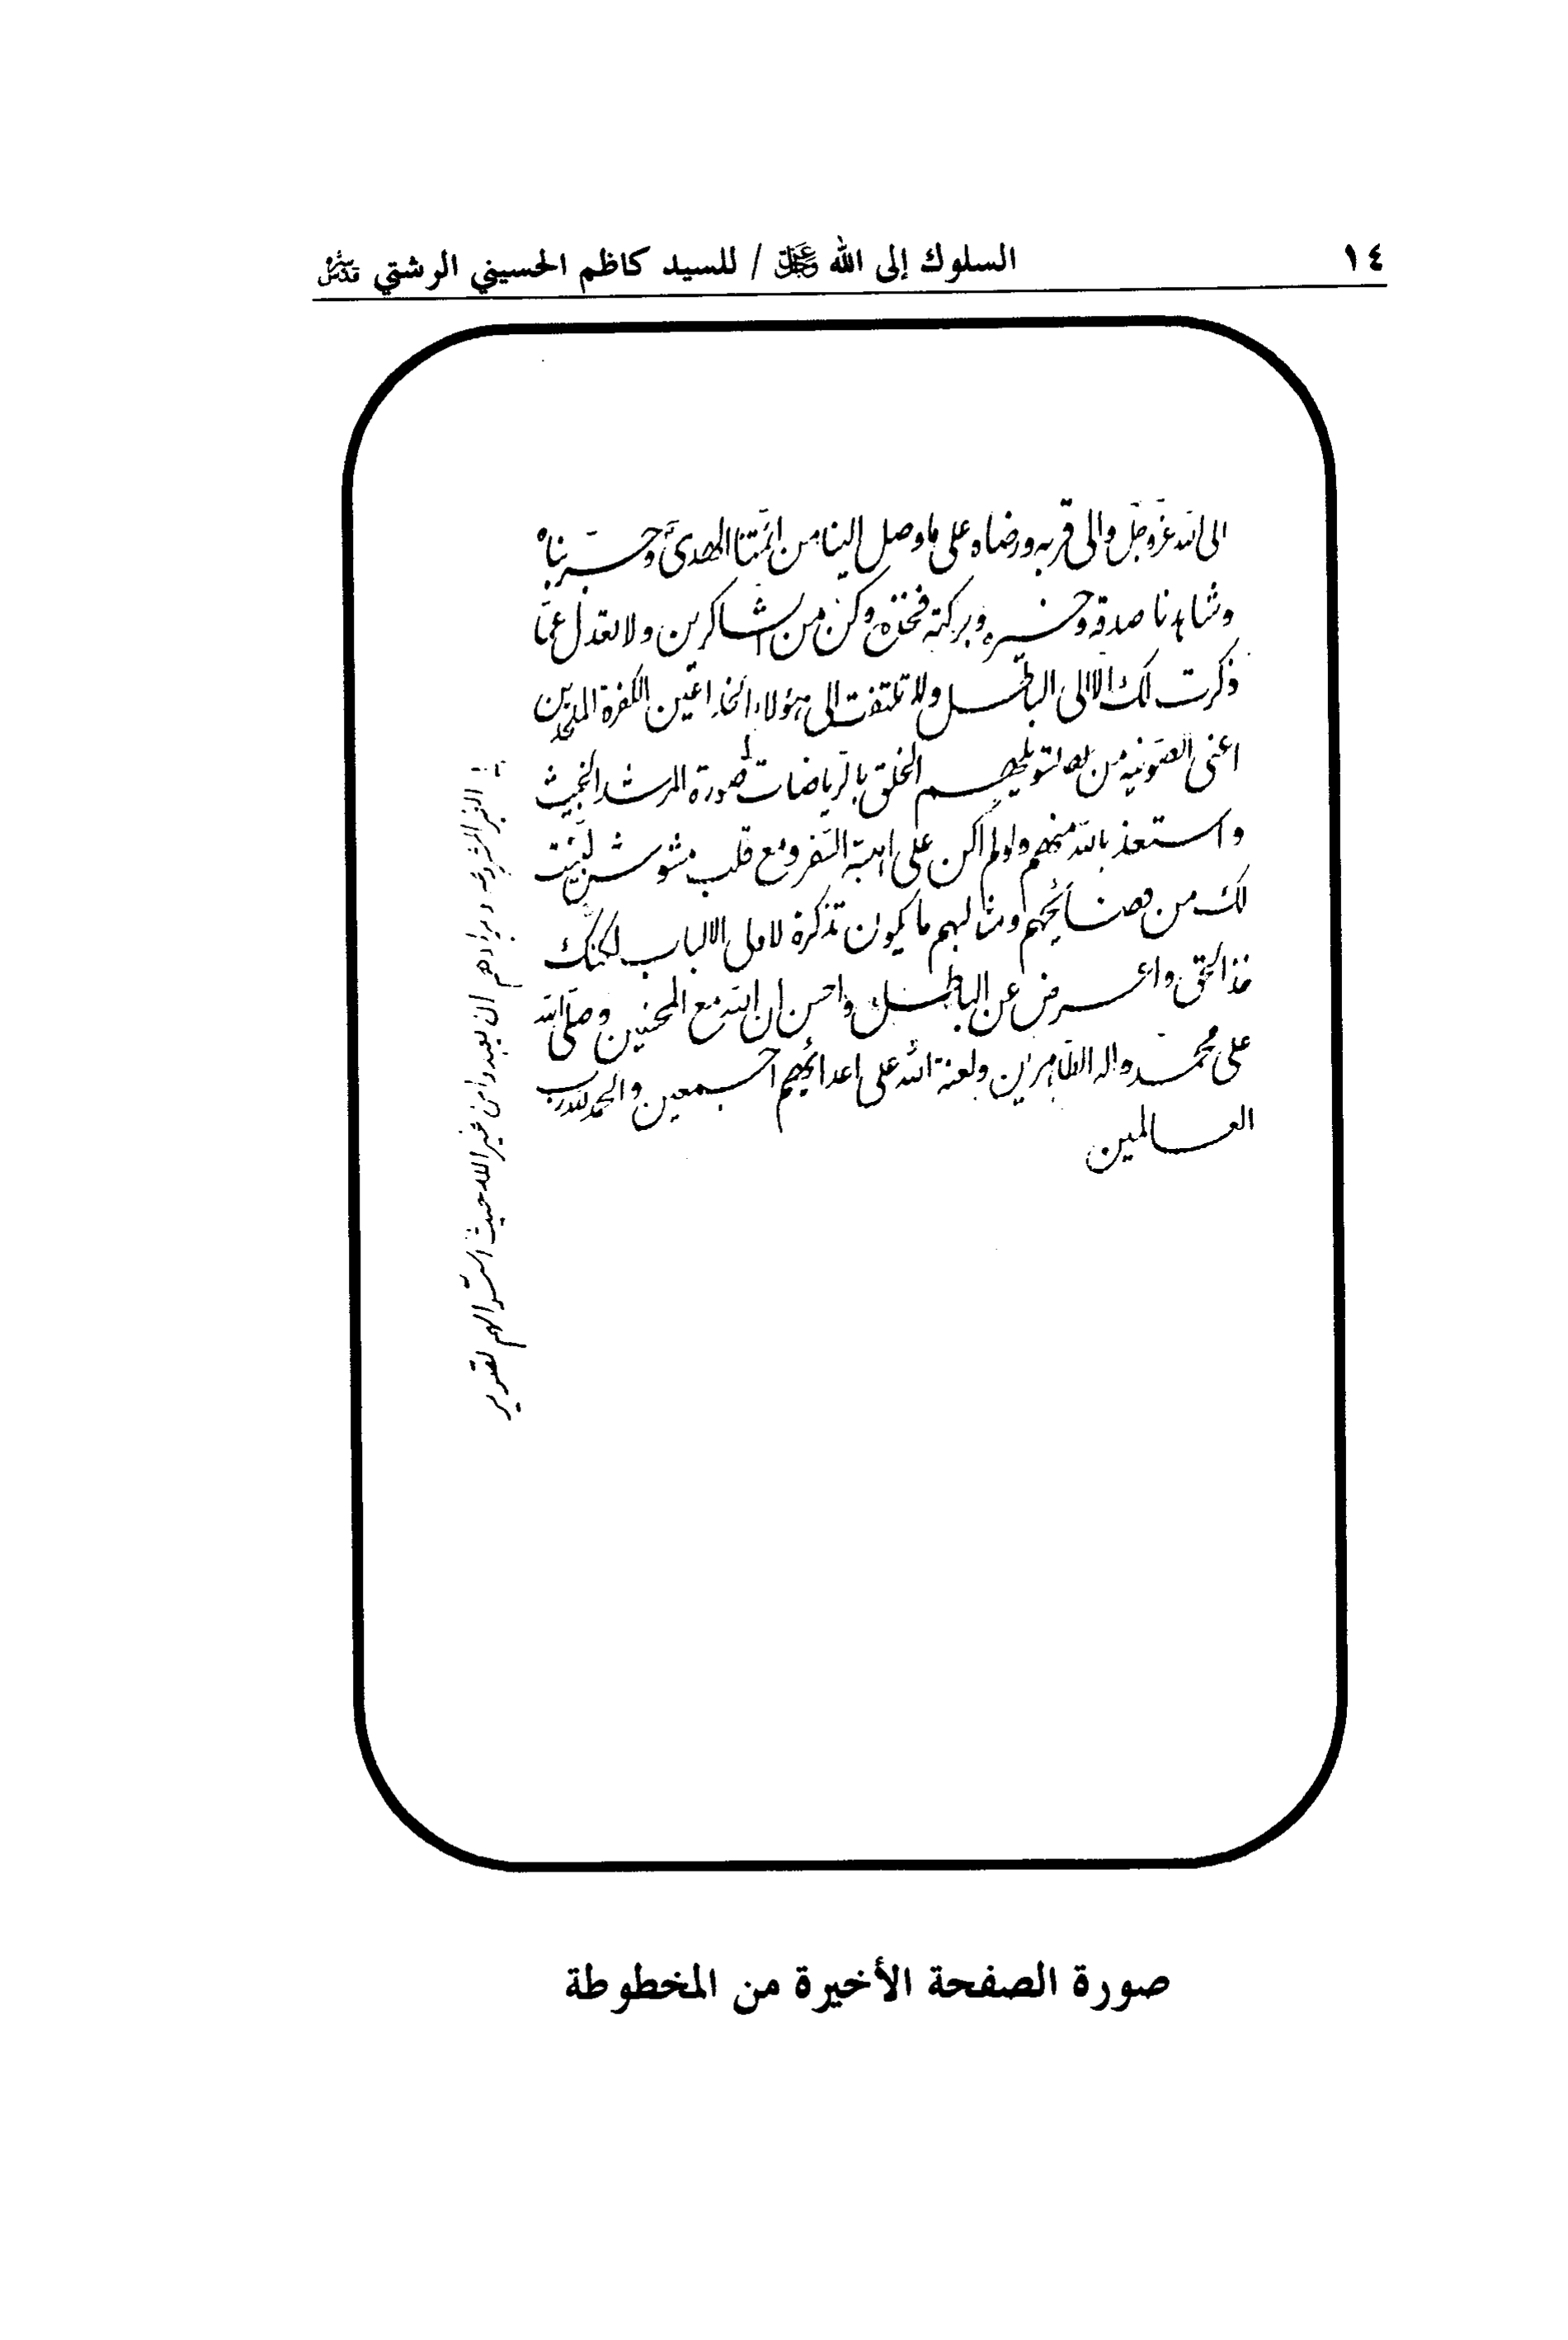 ١٤
السلوك إلى الله عز وجل / للسيد كاظم الحسيني الرشتي قدس سره
الى الله عزوجل والى قربه ورضاه على ما وصل الينا من ائمتنا الهدى وجربناه
وشاهدنا صدقه وخيره وبركته فخذه وكن من الشاكرين ولا تعدل عما
ذكرت لك الا الى الباطل ولا تلتفت الى هؤلاء الخداعين الكفرة الملحدين
اعنى الصوفيه من الخلق بالرياضات لصورة المرشد الخبيث
واستعذ بالله منهم ولو لم اكن على اهبة السفر ومع قلب مشوش لبينت
لك من فضائحهم ومثالبهم ما يكون تذكرة لاولى الالباب لكنك
خذ الحق واعرض عن الباطل واحسن ان الله مع المحسنين وصلى الله
على محمد واله الطاهرين ولعنة الله على اعدائهم اجمعين والحمد لله رب
العالمين
الغير المشروعه ومرادهم ان يعبدوا من غير الله حيث
صورة الصفحة الأخيرة من المخطوطة